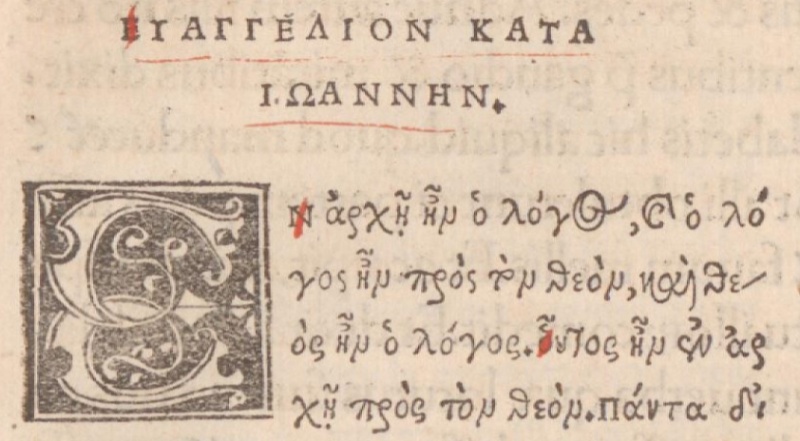 ΕΥΑΓΓΕΛΙΟΝ ΚΑΤΑ
ΙΩΑΝΝΗΝ.
ΕΝ ἀρχῇ ἦν ὁ λόγος, καὶ ὁ λό
γος ἦν πρὸς τὸν θεὸν, καὶ θε-
ὸς ἦν ὁ λόγος. οὗτος ἦν ἐν ἀρ
χῇ πρὸς τὸν θεὸν. πάντα δι